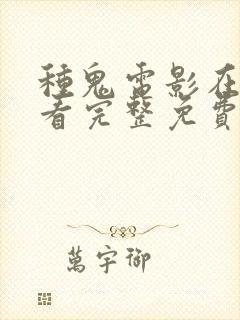 種鬼電影在
看完整免費
萬宇御